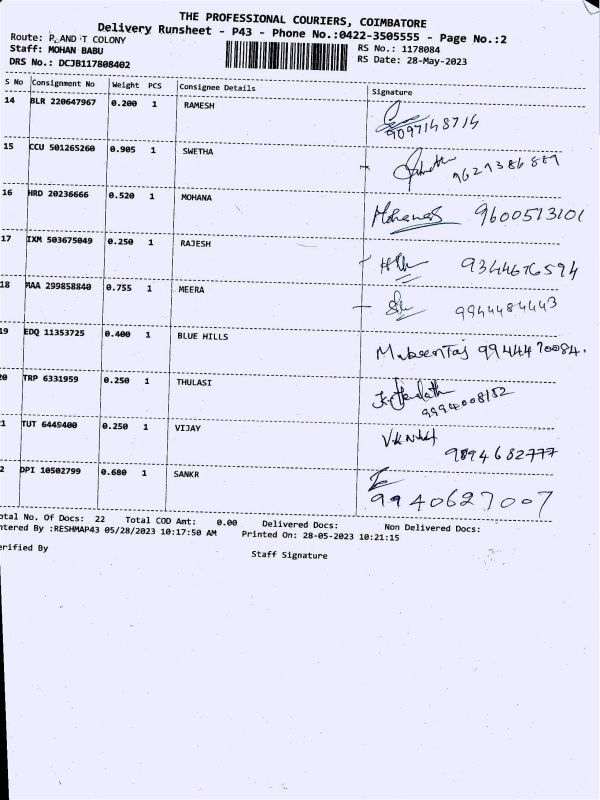 THE PROFESSIONAL COURIERS, COIMBATORE
Delivery Runsheet - P43 - Phone No.:0422-3505555 - Page No.:2
Route: P AND T COLONY
RS No.: 1178084
Staff: MOHAN BABU
RS Date: 28-May-2023
DRS No.: DCJB117808402
S No Consignment No Weight PCS Consignee Details Signature
14 BLR 220647967 0.200 1 RAMESH
9097148714
15 CCU 501265260 0.905 1 SWETHA
9629386889
16 HRD 20236666 0.520 1 MOHANA
9600513101
17 IXM 503675049 0.250 1 RAJESH
9344676594
18 MAA 299858840 0.755 1 MEERA
9944484443
19 EDQ 11353725 0.400 1 BLUE HILLS
9944470084.
0 TRP 6331959 0.250 1 THULASI
9994008182
1 TUT 6449400 0.250 1 VIJAY
9894682777
2 DPI 10502799 0.680 1 SANKR
9940627007
otal No. Of Docs: 22 Total COD Amt: 0.00 Delivered Docs: Non Delivered Docs:
ntered By :RESHMAP43 05/28/2023 10:17:50 AM Printed On: 28-05-2023 10:21:15
erified By
Staff Signature